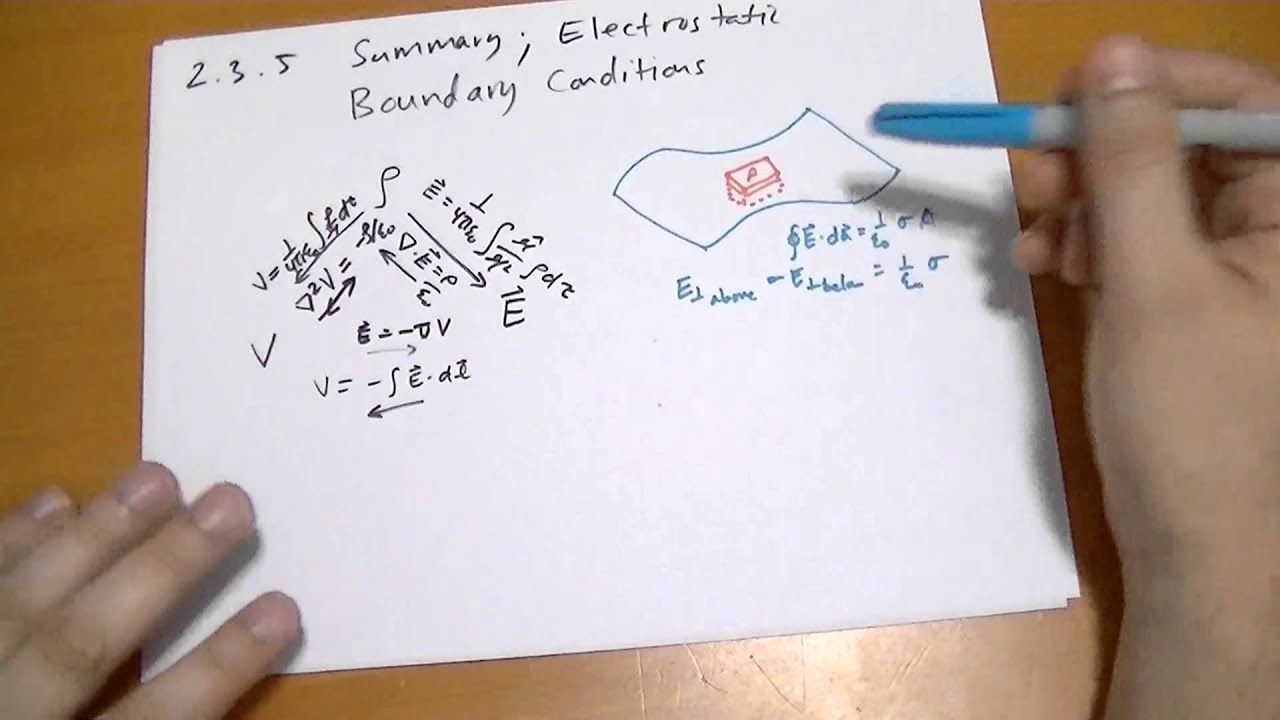 2.3.5 Summary; Electrostatic
Boundary Conditions
ρ
V = 1/4πε₀ ∫ ρ/𝓇 dτ
∇²V = -ρ/ε₀
∇·E⃗ = ρ/ε₀
E⃗ = 1/4πε₀ ∫ 𝓇̂/𝓇² ρ dτ
V
E⃗
E⃗ = -∇V
V = -∫ E⃗·dl⃗
A
∮E⃗·da⃗ = 1/ε₀ σ A
E⊥ above - E⊥ below = 1/ε₀ σ